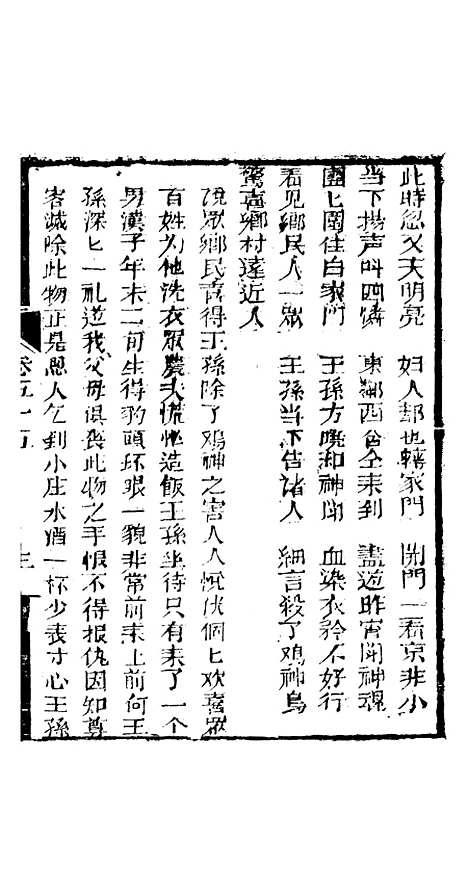 此時忽又天明亮 妇人却也轉家門 開門一看京非小
当下揚声叫四憐 東鄰西舍仝来到 盡道昨宵聞神魂
團匕圍住白家門 王孫方曉和神聞 血染衣衿不好行
看见鄉民人一衆 王孫当下告诸人 細言殺了鸡神鸟
驚喜鄉村遠近人
说眾鄉民喜得王孫除了鸡神之害人人悦伏個匕欢喜眾
百姓为他洗衣眾農夫慌忙造飯王孫坐待只有来了一个
男漢子年未二旬生得豹頭环眼一貌非常前来上前何王
孫深匕一礼道我父母俱喪此物之手恨不得报仇因知尊
客滅除此物正是恩人乞到小庄水酒一杯少表寸心王孫
卷五十五